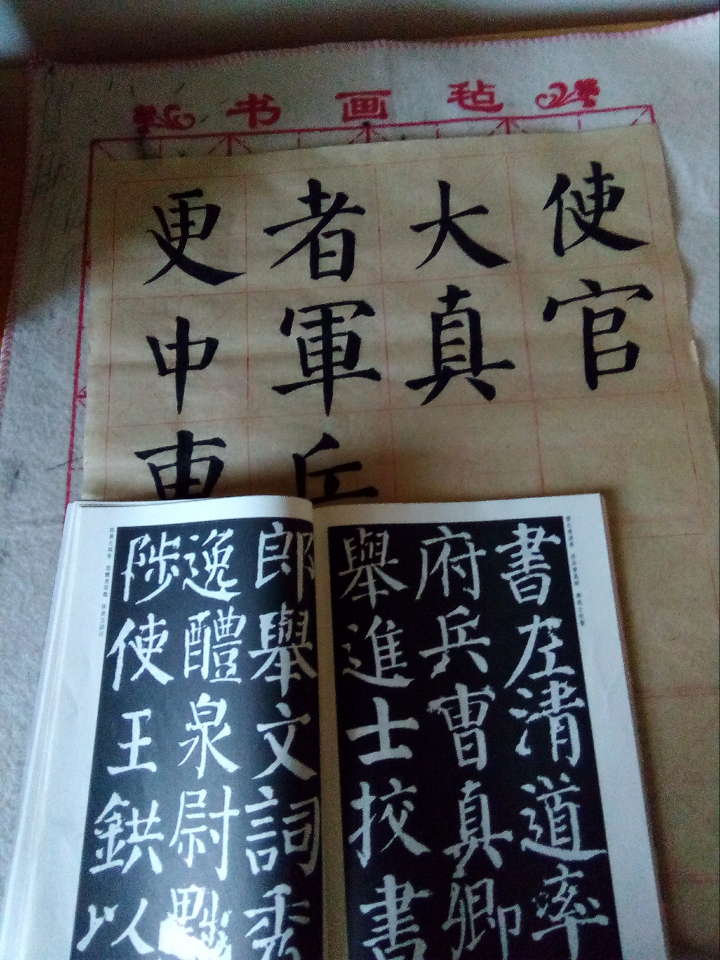 书画毡
使官
大真
者軍兵
更中
書左清道率
府兵曹真卿
舉進士挍書
郎舉文詞秀
逸醴泉尉黜
陟使王鉷以